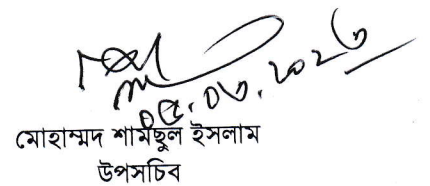 ০৫.০৩.২০২৩
মোহাম্মদ শামছুল ইসলাম
উপসচিব